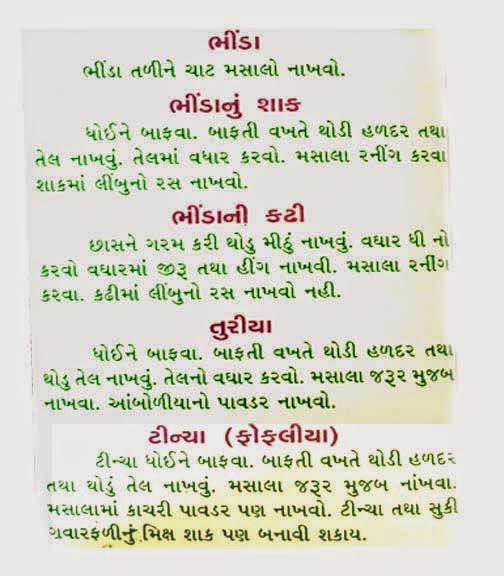 ભીંડા
ભીંડા તળીને ચાટ મસાલો નાખવો.
ભીંડાનું શાક
ધોઈને બાફવા. બાફતી વખતે થોડી હળદર તથા
તેલ નાખવું. તેલમાં વધાર કરવો. મસાલા રનીંગ કરવા
શાકમાં લીંબુનો રસ નાખવો.
ભીંડાની કઢી
છાસને ગરમ કરી થોડુ મીઠું નાખવું. વઘાર ઘી નો
કરવો વઘારમાં જીરૂ તથા હીંગ નાખવી. મસાલા રનીંગ
કરવા. કઢીમાં લીંબુનો રસ નાખવો નહી.
તુરીયા
ધોઈને બાફવા. બાફતી વખતે થોડી હળદર તથા
થોડુ તેલ નાખવું. તેલનો વઘાર કરવો. મસાલા જરૂર મુજબ
નાખવા. આંબોળીયાનો પાવડર નાખવો.
ટીન્ચા (ફોફલીયા)
ટીન્ચા ધોઈને બાફવા. બાફતી વખતે થોડી હળદર
તથા થોડું તેલ નાખવું. મસાલા જરૂર મુજબ નાંખવા.
મસાલામાં કાચરી પાવડર પણ નાખવો. ટીન્ચા તથા સુકી
ગવારફળીનું મિક્ષ શાક પણ બનાવી શકાય.